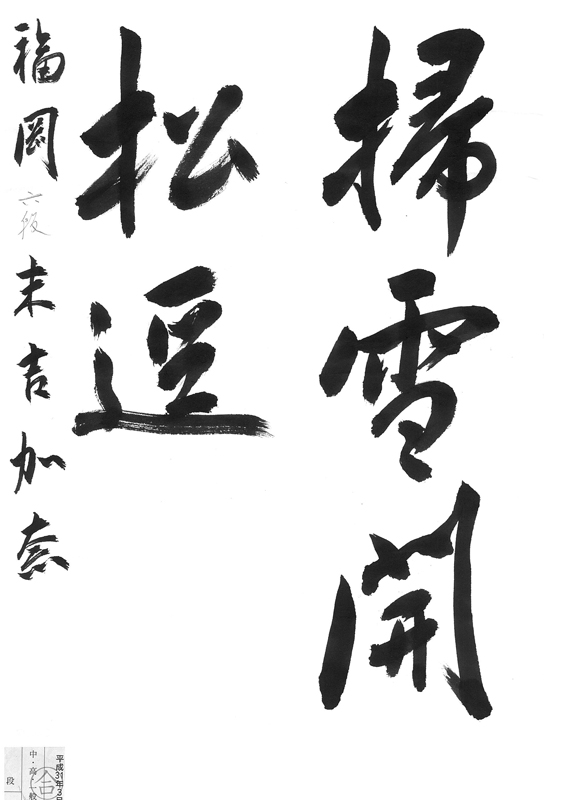 掃雪開
松逕
福岡 六段 末吉加奈
平成31年3
中・高・一般
合
段